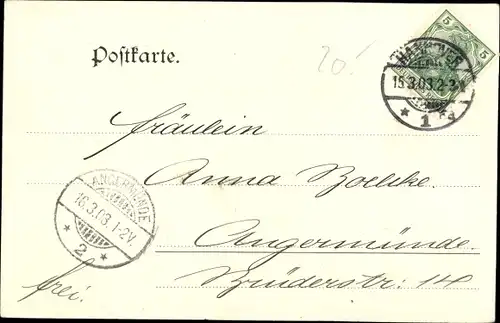 Postkarte.
20.-
5 5
HANNOVER
15.3.03.2-3N.
* 1 *
Fräulein
Anna Boelcke.
ANGERMÜNDE
16.3.03.1-2V.
* 2 *
Angermünde.
frei.
Brüderstr. 14